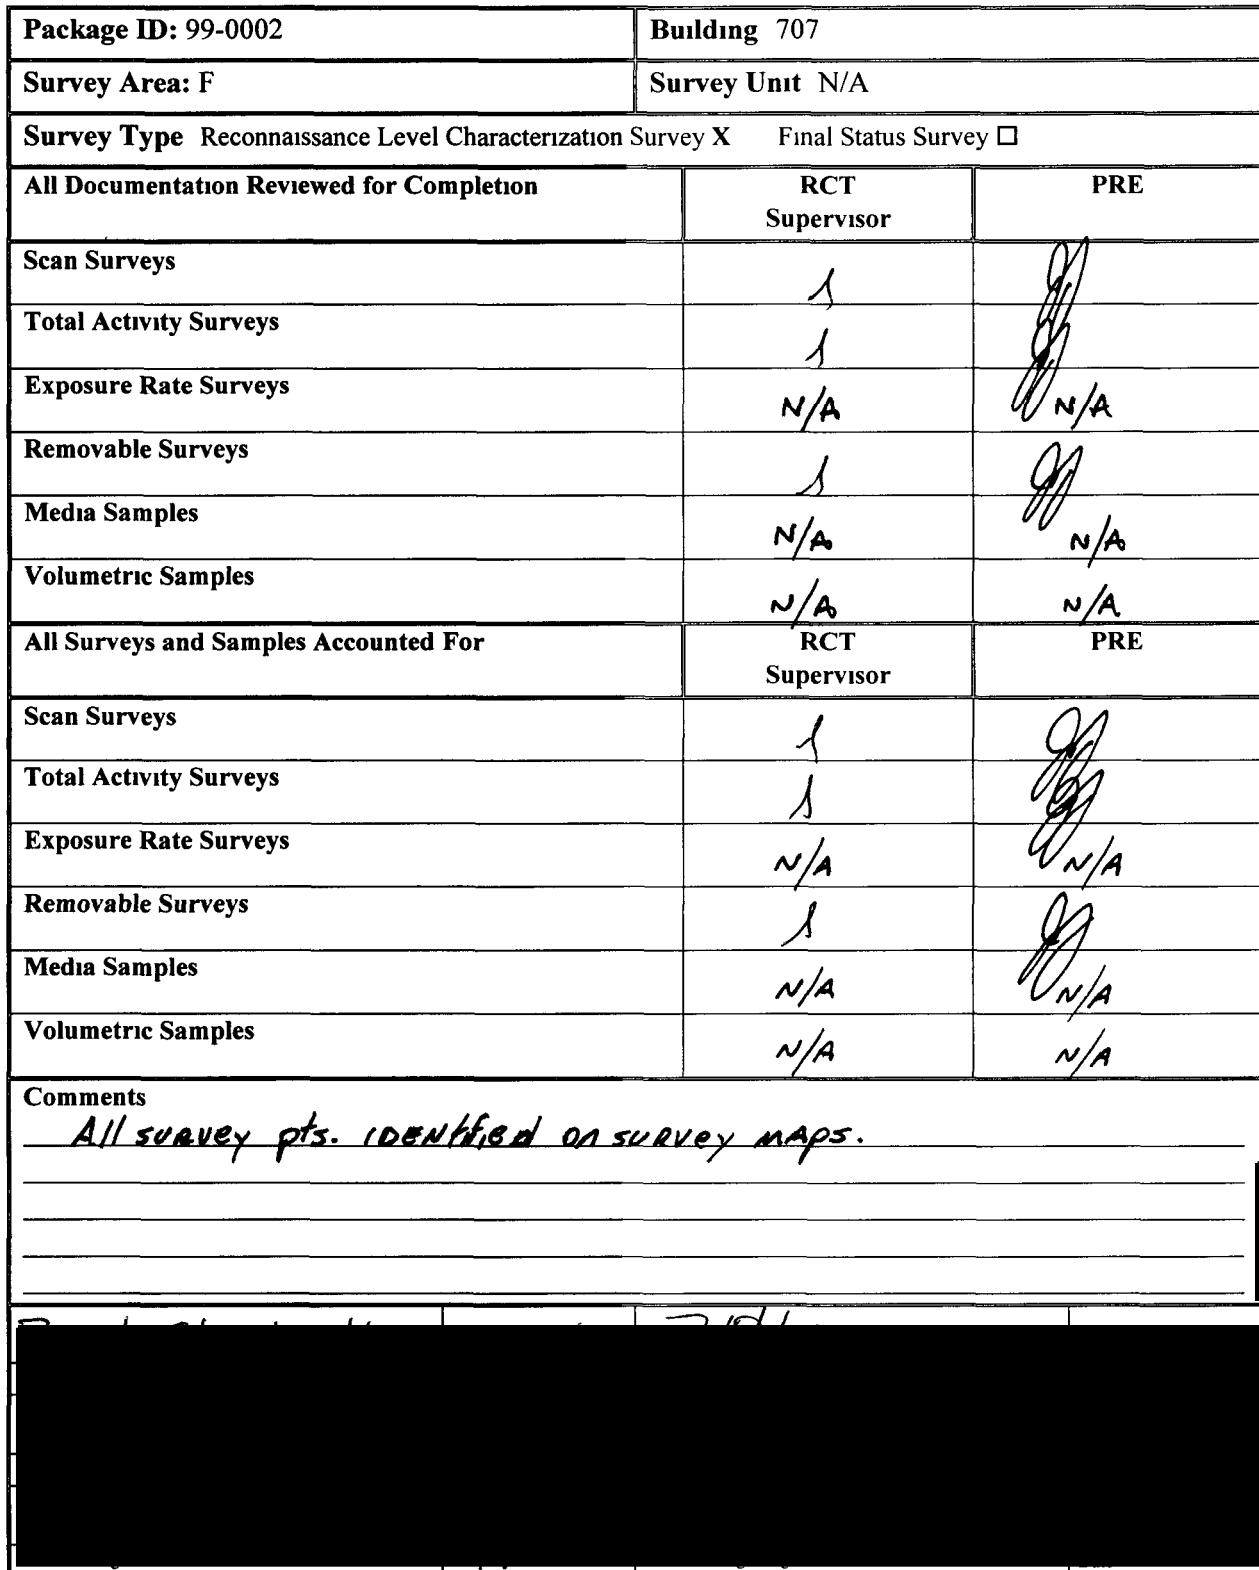 Package ID: 99-0002 Building 707
Survey Area: F Survey Unit N/A
Survey Type Reconnaissance Level Characterization Survey X Final Status Survey ☐
All Documentation Reviewed for Completion RCT Supervisor PRE
Scan Surveys
Total Activity Surveys
Exposure Rate Surveys N/A N/A
Removable Surveys
Media Samples N/A N/A
Volumetric Samples N/A N/A
All Surveys and Samples Accounted For RCT Supervisor PRE
Scan Surveys
Total Activity Surveys
Exposure Rate Surveys N/A N/A
Removable Surveys
Media Samples N/A N/A
Volumetric Samples N/A N/A
Comments
All survey pts. IDENtified on survey maps.